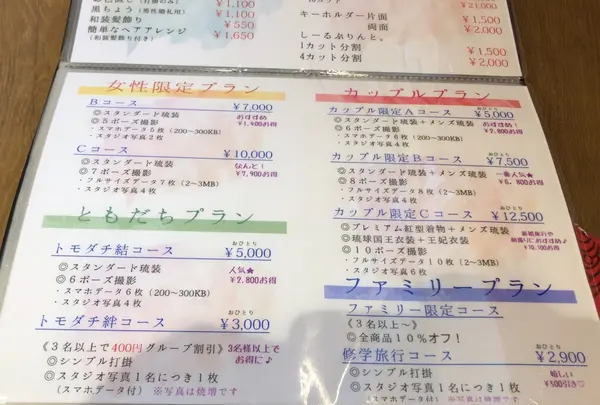 ¥1,100
黒ちょう（男性婚礼用） ¥1,100
和装髪飾り ¥550
簡単なヘアアレンジ ¥1,650
（和装髪飾り付き）
¥21,000
キーホルダー片面 ¥1,500
両面 ¥2,000
しーるぷりんと。
1カット分割 ¥1,500
4カット分割 ¥2,000
女性限定プラン
Bコース ¥7,000
◎スタンダード琉装 おすすめ
◎5ポーズ撮影 ¥1,400お得
・スマホデータ5枚（200~300KB）
・スタジオ写真2枚
Cコース ¥10,000
◎スタンダード琉装 なんと！
◎7ポーズ撮影 ¥7,900お得
・フルサイズデータ7枚（2~3MB）
・スタジオ写真4枚
ともだちプラン
おひとり
トモダチ結コース ¥5,000
◎スタンダード琉装 人気★
◎6ポーズ撮影 ¥2,800お得
・スマホデータ6枚（200~300KB）
・スタジオ写真4枚
おひとり
トモダチ絆コース ¥3,000
《3名以上で400円グループ割引》 3名様以上でお得に♪
◎シンプル打掛
◎スタジオ写真1名につき1枚
（スマホデータ付） ※写真は焼増です
カップルプラン
おひとり
カップル限定Aコース ¥5,000
◎スタンダード琉装＋メンズ琉装 おすすめ！
◎6ポーズ撮影 ¥2,800お得
・スマホデータ6枚（200~300KB）
・スタジオ写真4枚
おひとり
カップル限定Bコース ¥7,500
◎スタンダード琉装＋メンズ琉装 一番人気★
◎8ポーズ撮影 ¥6,800お得
・フルサイズデータ8枚（2~3MB）
・スタジオ写真4枚
おひとり
カップル限定Cコース ¥12,500
◎プレミアム紅型着物＋メンズ琉装
◎琉球国王衣装＋王妃衣装
◎10ポーズ撮影 ¥10,100お得
・フルサイズデータ10枚（2~3MB）
・スタジオ写真6枚
ファミリープラン
ファミリー限定コース
《3名以上~》
◎全商品10％オフ！
おひとり
修学旅行コース ¥2,900
◎シンプル打掛 嬉しい
◎スタジオ写真1名につき1枚 ¥500引き♡
（スマホデータ付） ※写真は焼増です